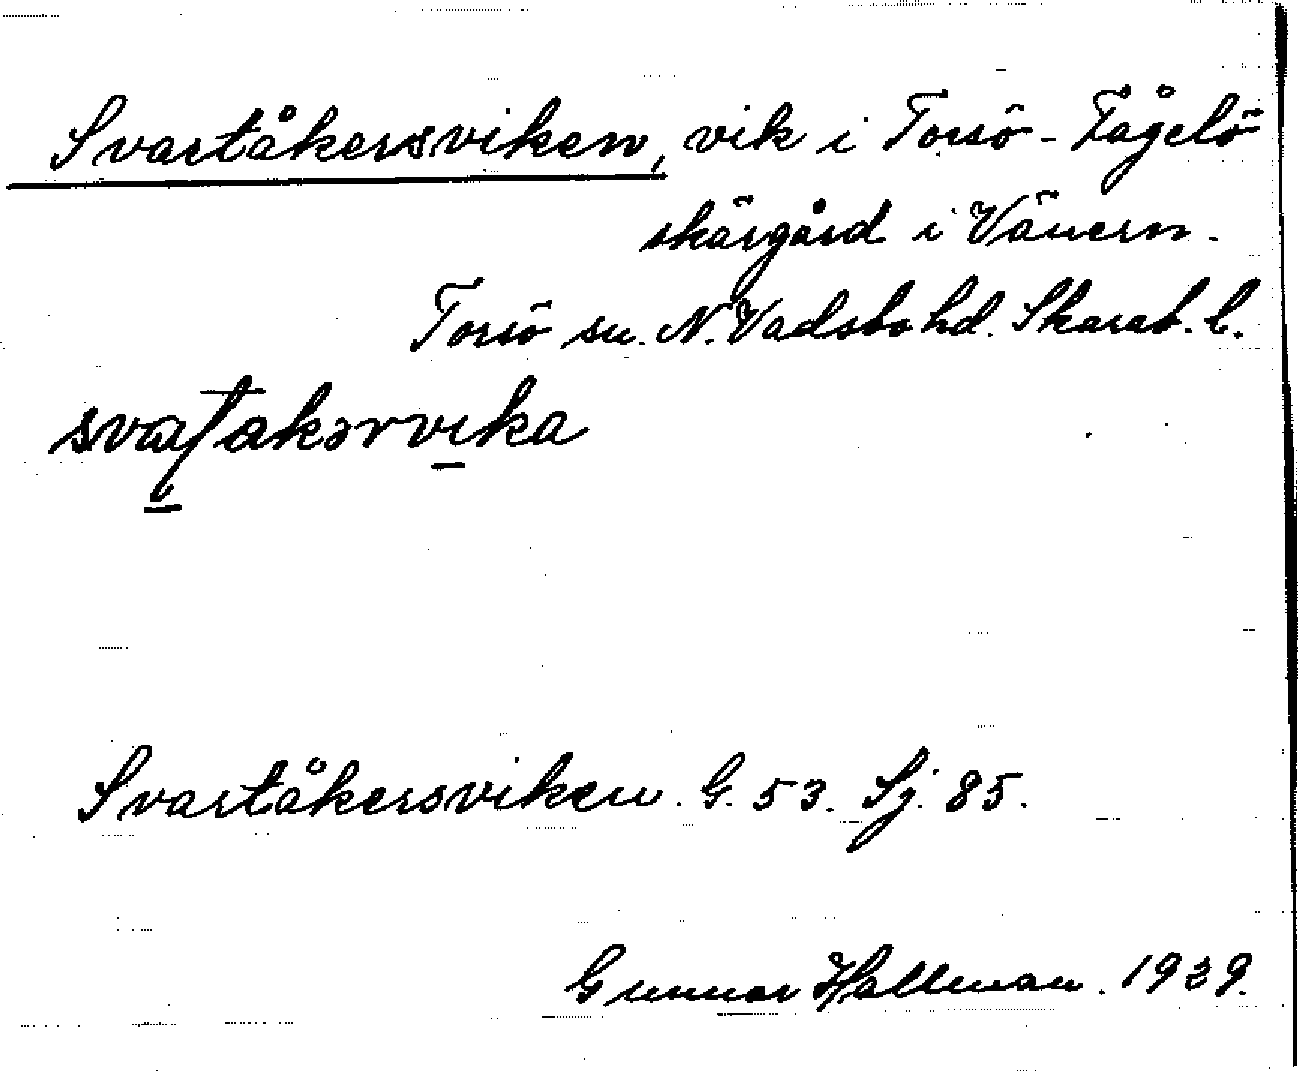 Svartåkersviken, vik i Torsö-Fågelö
skärgård i Vänern.
Torsö sn. N. Vadsbo hd. Skarab. l.
svaʈakərvika
Svartåkersviken. G. 53. Sj. 85.
Gunnar Hallman. 1939.